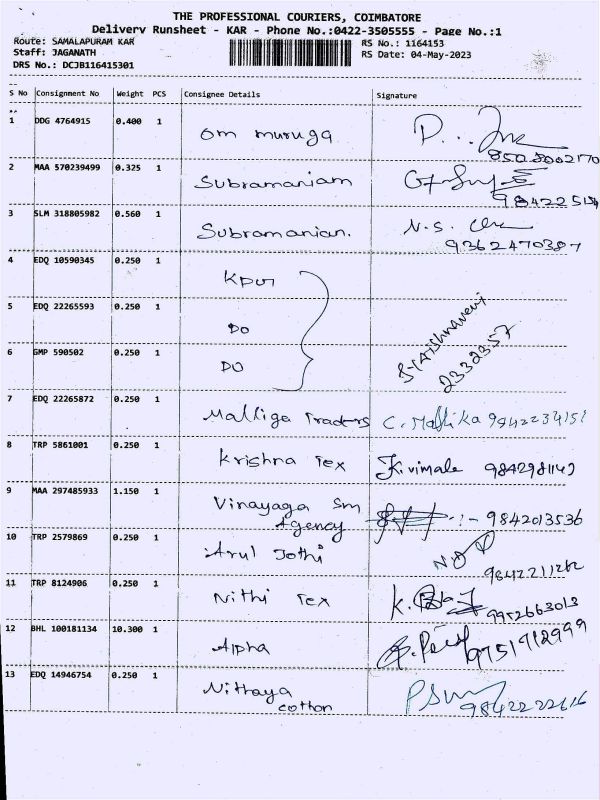 THE PROFESSIONAL COURIERS, COIMBATORE
Delivery Runsheet - KAR - Phone No.:0422-3505555 - Page No.:1
Route: SAMALAPURAM KAR
RS No.: 1164153
Staff: JAGANATH
RS Date: 04-May-2023
DRS No.: DCJB116415301
S No Consignment No Weight PCS Consignee Details Signature
1 DDG 4764915 0.400 1 Om muruga
8508002170
2 MAA 570239499 0.325 1 Subramaniam
3 SLM 318805982 0.560 1 Subramanian. N.S.
9362470387
4 EDQ 10590345 0.250 1
5 EDQ 22265593 0.250 1 DO
6 GMP 590502 0.250 1 DO
2332357
7 EDQ 22265872 0.250 1 Malliga Traders C. Mallika 984223415
8 TRP 5861001 0.250 1 Krishna Tex K.vimale 9842981142
9 MAA 297485933 1.150 1 Vinayaga Sm
Agency 9842013536
10 TRP 2579869 0.250 1 Arul Jothi
9842211262
11 TRP 8124906 0.250 1 Nithi Tex K.
9952663013
12 BHL 100181134 10.300 1 Alpha
9751712999
13 EDQ 14946754 0.250 1 Nithaya
cotton 9842222616